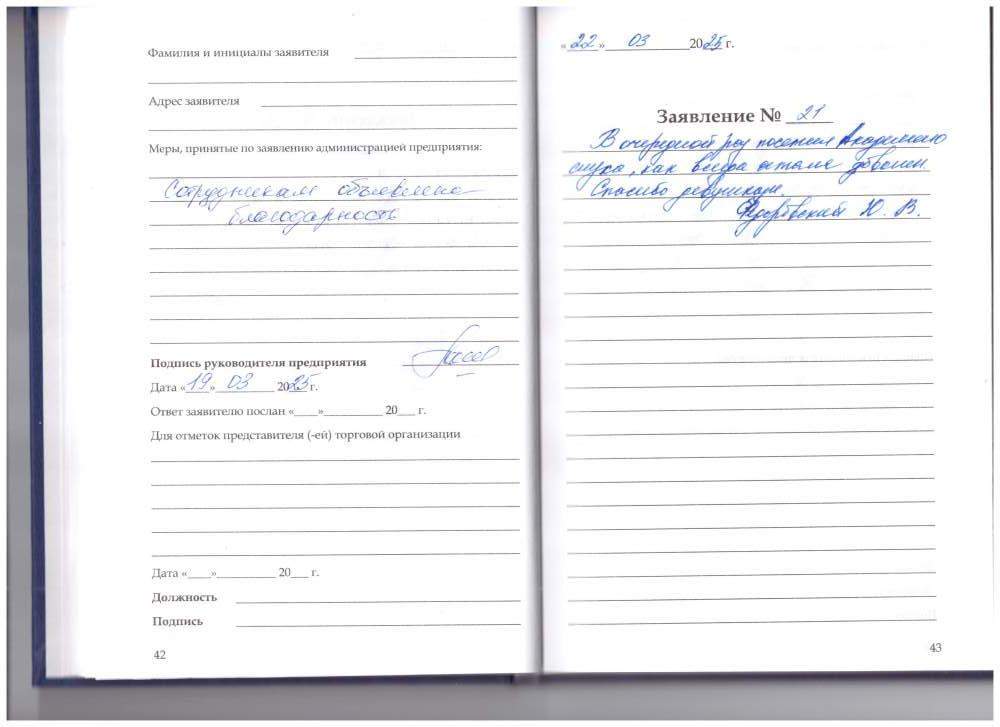 Фамилия и инициалы заявителя
Адрес заявителя
Меры, принятые по заявлению администрацией предприятия:
Сотрудникам объявлена
благодарность
Подпись руководителя предприятия
Дата «19» 03 2025 г.
Ответ заявителю послан «____»__________ 20___ г.
Для отметок представителя (-ей) торговой организации
Дата «____»__________ 20___ г.
Должность
Подпись
42
«22» 03 2025 г.
Заявление № 21
В очередной раз посетил Академию
слуха, как всегда остался доволен.
Спасибо девушкам.
Ю. В.
43